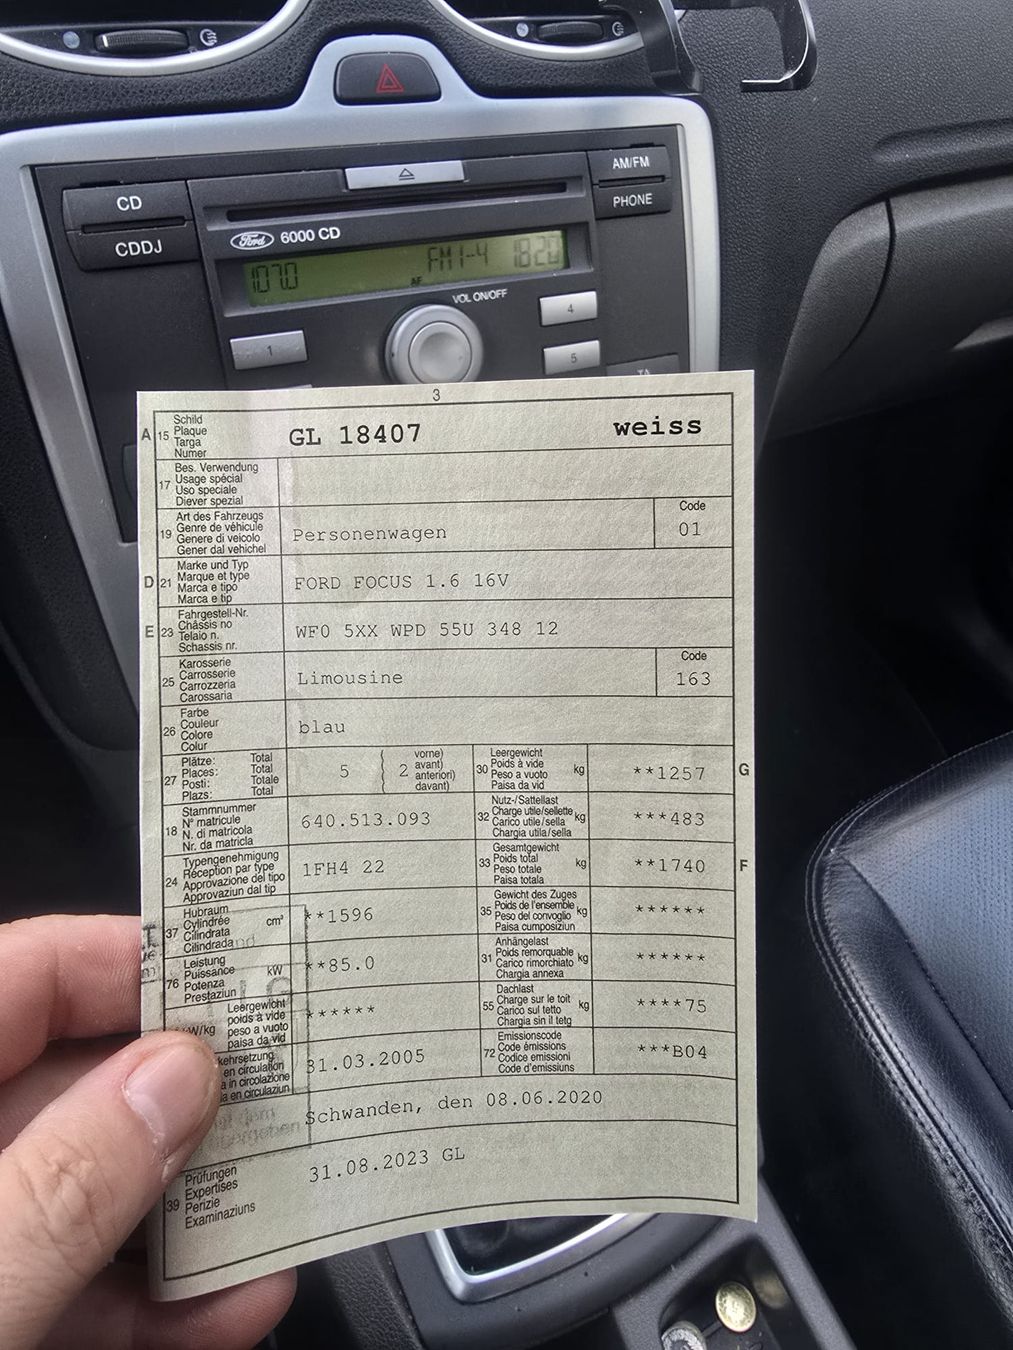 AM/FM
CD
PHONE
CDDJ
Ford 6000 CD
107.0 AF FM1-4 18:20
VOL ON/OFF
4
1
5
TA
3
A 15 Schild
Plaque
Targa
Numer
GL 18407 weiss
17 Bes. Verwendung
Usage spécial
Uso speciale
Diever spezial
19 Art des Fahrzeugs
Genre de véhicule
Genere di veicolo
Gener dal vehichel
Personenwagen
Code
01
D 21 Marke und Typ
Marque et type
Marca e tipo
Marca e tip
FORD FOCUS 1.6 16V
E 23 Fahrgestell-Nr.
Châssis no
Telaio n.
Schassis nr.
WF0 5XX WPD 55U 348 12
25 Karosserie
Carrosserie
Carrozzeria
Carossaria
Limousine
Code
163
26 Farbe
Couleur
Colore
Colur
blau
27 Plätze: Total
Places: Total
Posti: Totale
Plazs: Total
5 ( 2 vorne)
avant)
anteriori)
davant)
30 Leergewicht
Poids à vide
Peso a vuoto
Paisa da vid
kg
**1257 G
18 Stammnummer
N° matricule
N. di matricola
Nr. da matricla
640.513.093
32 Nutz-/Sattellast
Charge utile/sellette
Carico utile/sella
Chargia utila/sella
kg
***483
24 Typengenehmigung
Réception par type
Approvazione del tipo
Approvaziun dal tip
1FH4 22
33 Gesamtgewicht
Poids total
Peso totale
Paisa totala
kg
**1740 F
37 Hubraum
Cylindrée
Cilindrata
Cilindrada
cm³
**1596
35 Gewicht des Zuges
Poids de l'ensemble
Peso del convoglio
Paisa cumposiziun
kg
******
76 Leistung
Puissance
Potenza
Prestaziun
kW
**85.0
31 Anhängelast
Poids remorquable
Carico rimorchiato
Chargia annexa
kg
******
kW/kg
Leergewicht
poids à vide
peso a vuoto
paisa da vid
******
55 Dachlast
Charge sur le toit
Carico sul tetto
Chargia sin il tetg
kg
****75
kehrsetzung
en circulation
a in circolazione
a en circulaziun
31.03.2005
72 Emissionscode
Code émissions
Codice emissioni
Code d'emissiuns
***B04
Schwanden, den 08.06.2020
39 Prüfungen
Expertises
Perizie
Examinaziuns
31.08.2023 GL